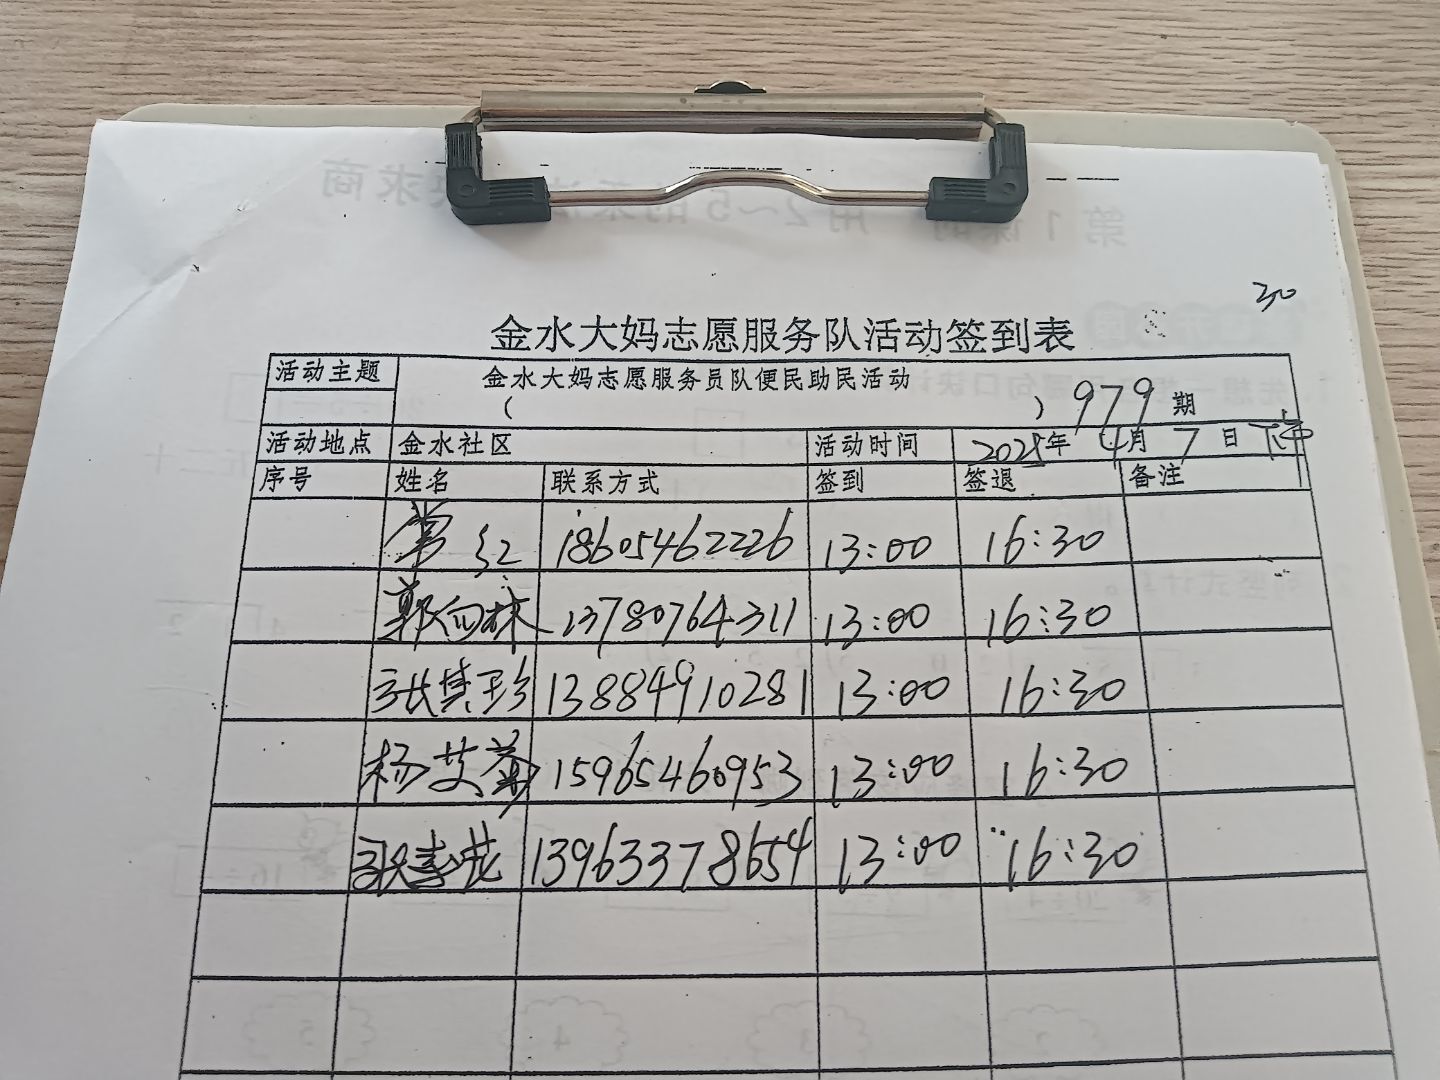 30
金水大妈志愿服务队活动签到表
活动主题 金水大妈志愿服务员队便民助民活动
( ) 979 期
活动地点 金水社区 活动时间 2025年 4月 7日 下午
序号 姓名 联系方式 签到 签退 备注
常红 18605462226 13:00 16:30
郭向林 13780764311 13:00 16:30
张其珍 13884910281 13:00 16:30
杨艾菊 15965460953 13:00 16:30
13963378654 13:00 16:30